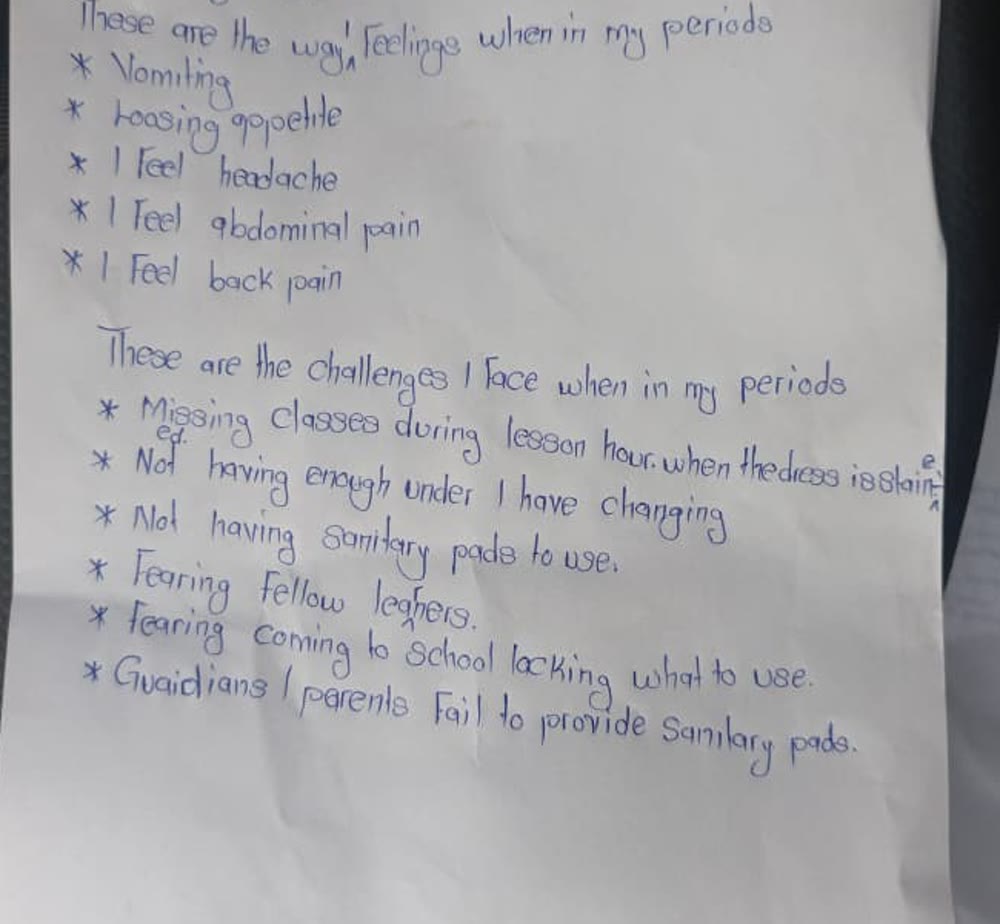 These are the way I Feelings when in my periods
* Vomiting
* Loosing appetite
* I Feel headache
* I Feel abdominal pain
* I Feel back pain
These are the challenges I Face when in my periods
* Missing Classes during lesson hour. when the dress is staine
ed.
* Not having enough under I have changing
* Not having sanitary pads to use.
* Fearing Fellow leaners.
* Fearing coming to school lacking what to use.
* Guaidians / parents Fail to provide Sanitary pads.